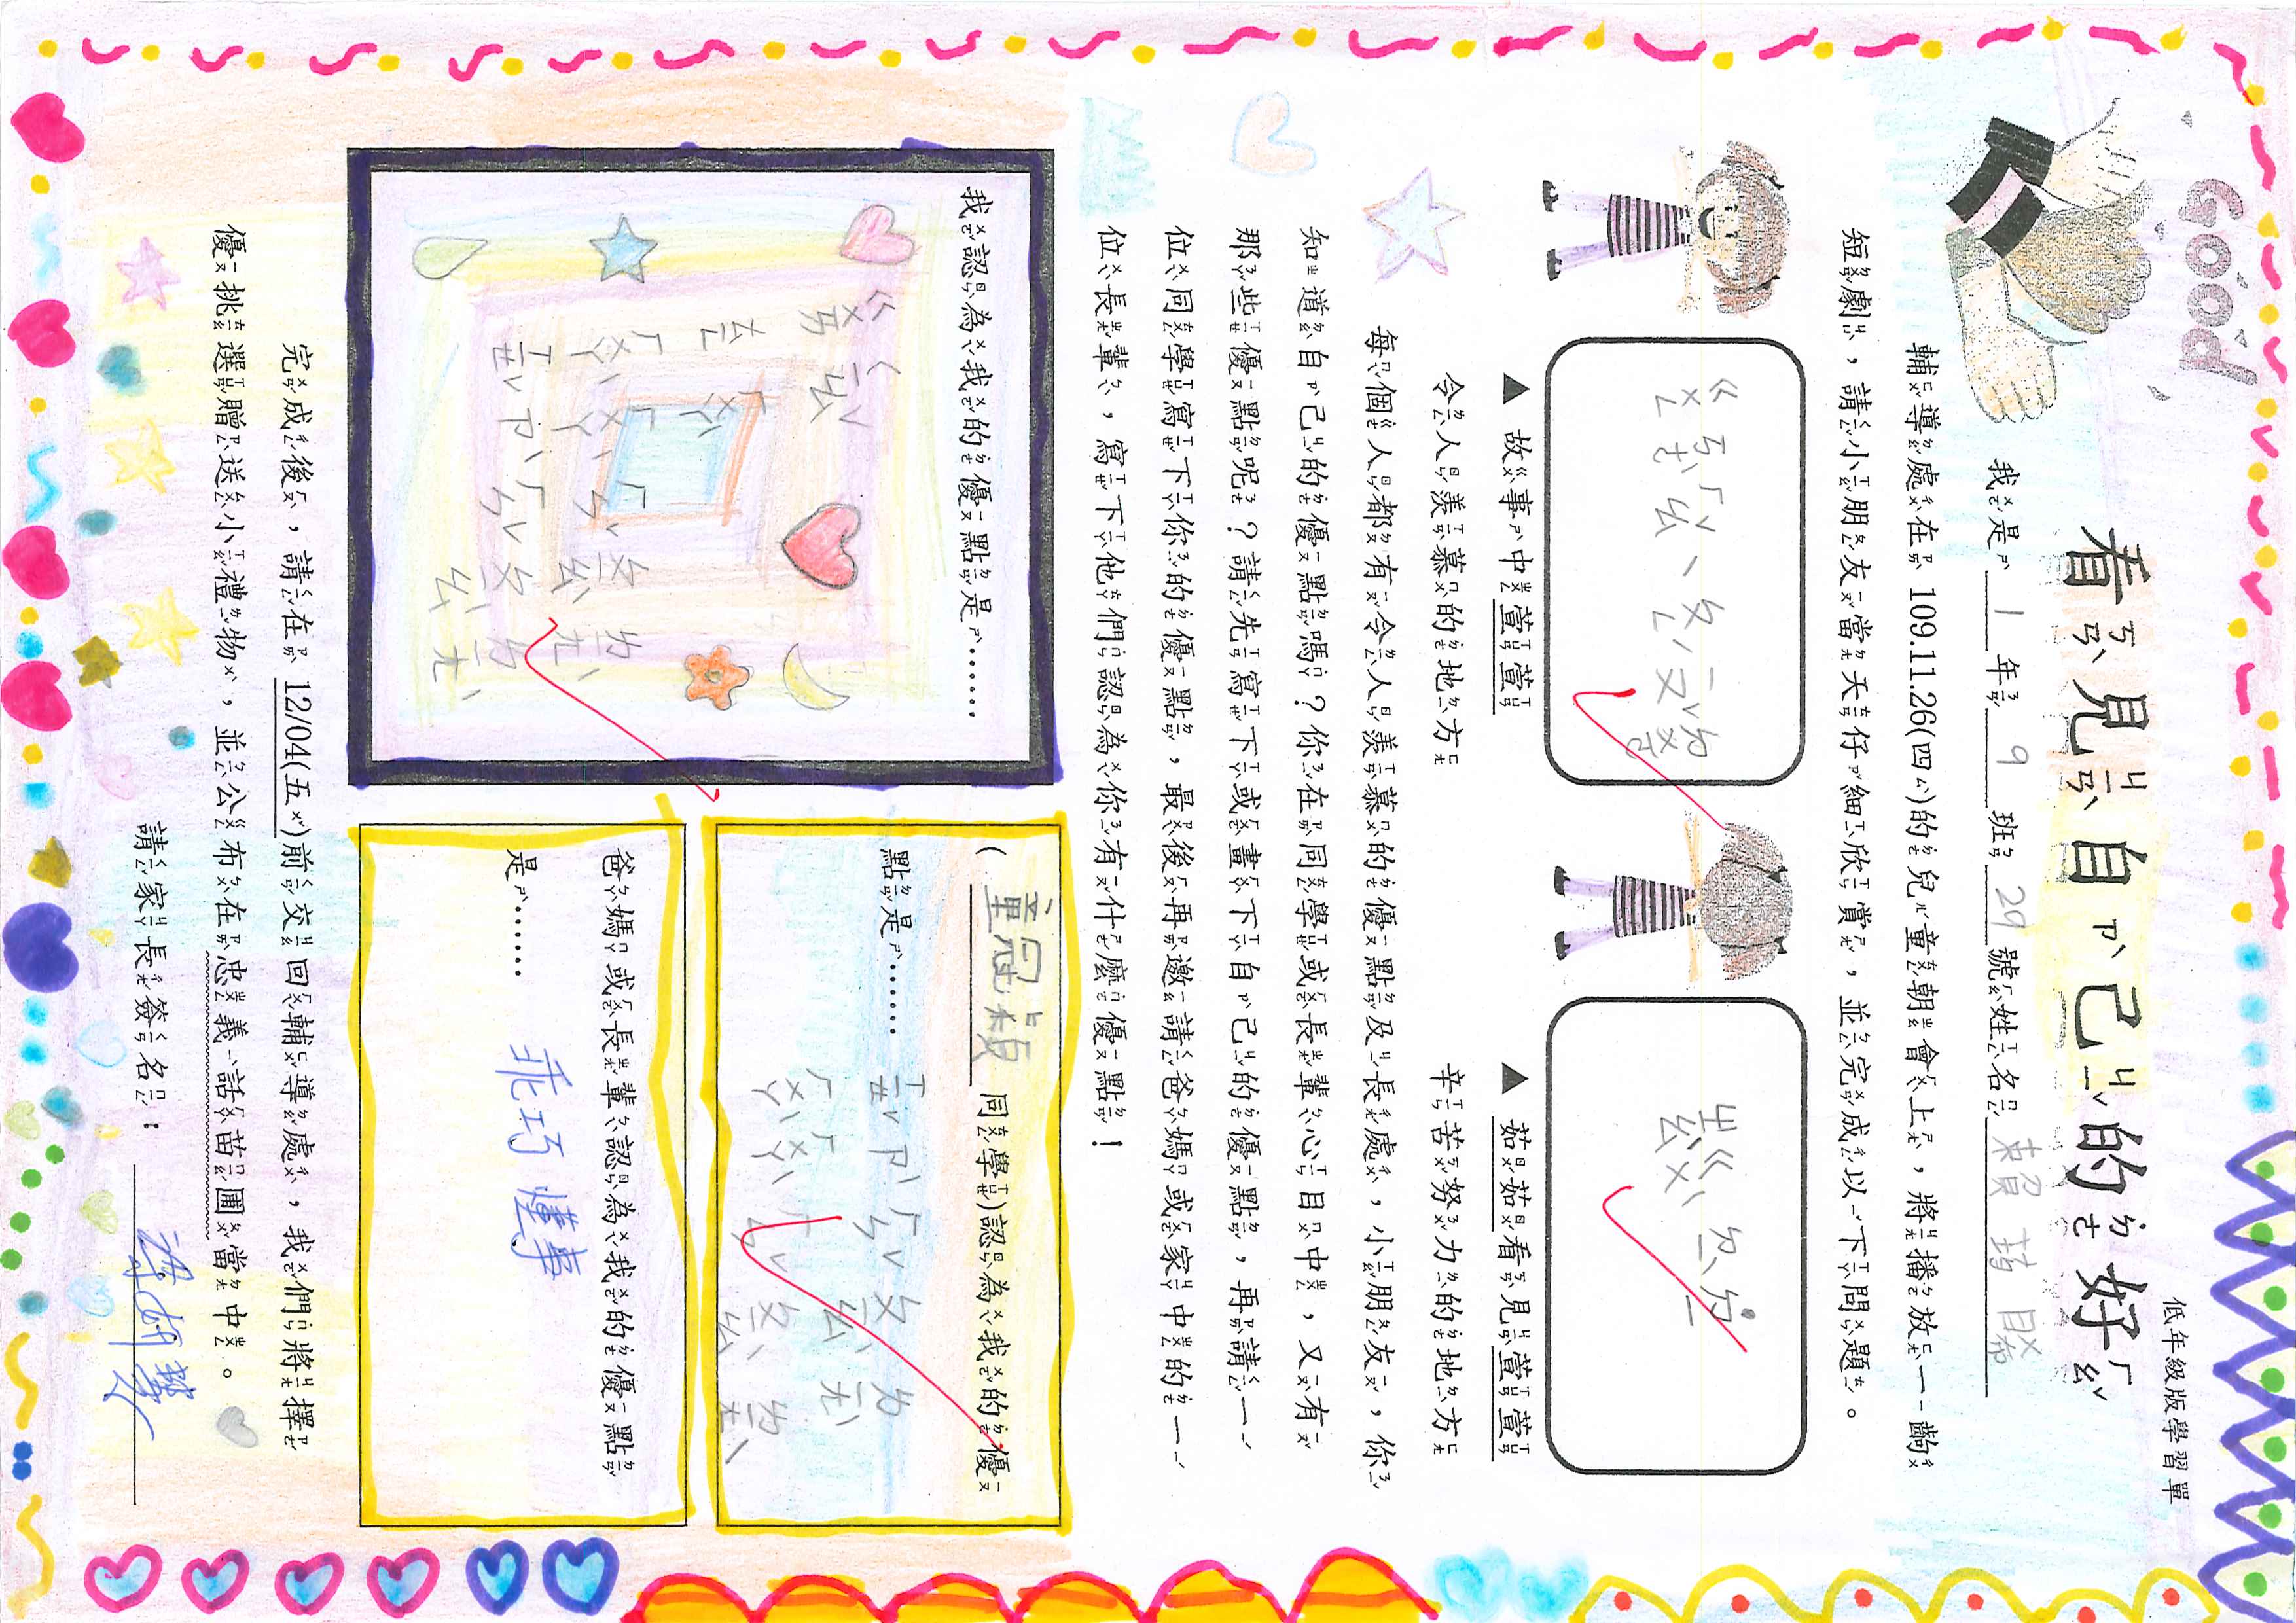 低年級版學習單
GOOD
看ㄎㄢˋ見ㄐㄧㄢˋ自ㄗˋ己ㄐㄧˇ的ㄉㄜ˙好ㄏㄠˇ
我是 1 年 9 班 29 號姓名 賴
輔導處在 109.11.26(四)的兒童朝會上,將播放一齣
短劇,請小朋友當天仔細欣賞,並完成以下問題。
▲ 故事中萱萱
令人羨慕的地方
▲ 茹茹看見萱萱
辛苦努力的地方
每個人都有令人羨慕的優點及長處,小朋友,你
知道自己的優點嗎?你在同學或長輩心目中,又有
那些優點呢?請先寫下或畫下自己的優點,再請一
位同學寫下你的優點,最後再邀請爸媽或家中的一
位長輩,寫下他們認為你有什麼優點!
我認為我的優點是……
(童冠 同學)認為我的優
點是……
ㄒㄧㄝˇ ㄗˋ ㄏㄣˇ ㄆㄧㄠˋ ㄌㄧㄤˋ
ㄏㄨㄚˋ ㄏㄨㄚˋ ㄏㄣˇ ㄆㄧㄠˋ ㄌㄧㄤˋ
爸媽或長輩認為我的優點
是……
乖巧 懂事
完成後,請在 12/04(五)前交回輔導處,我們將擇
優挑選贈送小禮物,並公布在忠義話苗圃當中。
請家長簽名: